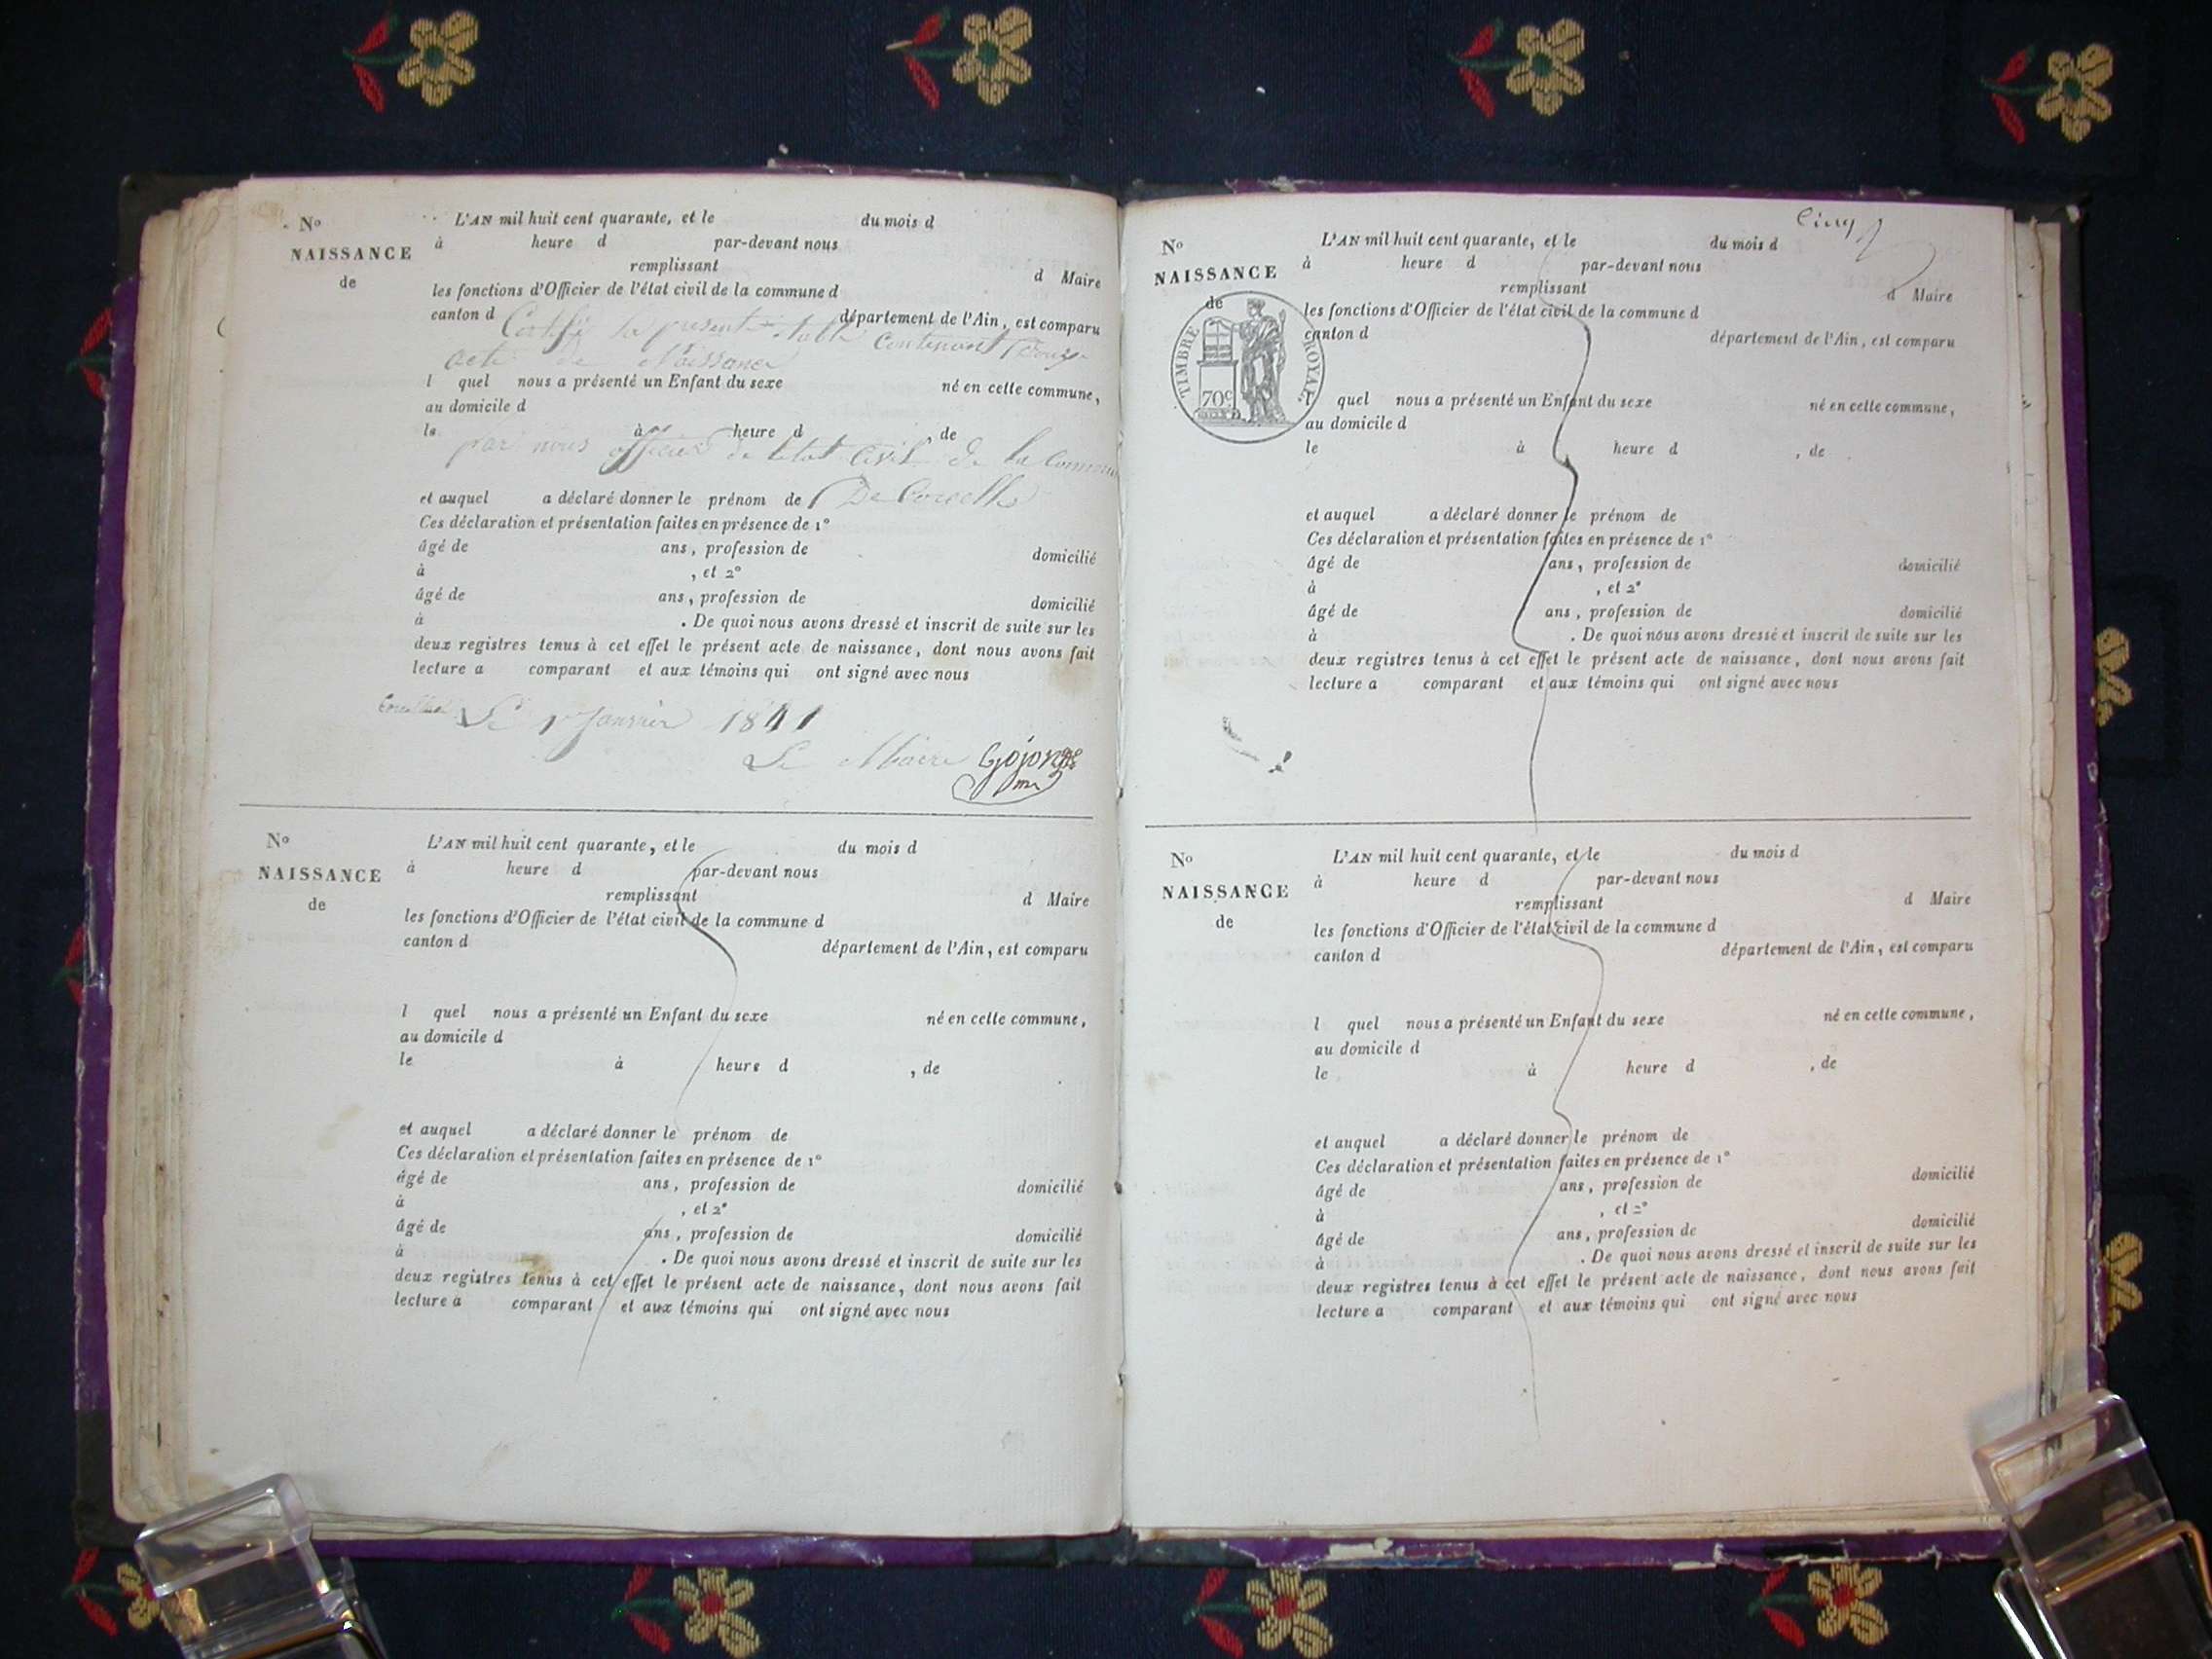 No
NAISSANCE
de
L'AN mil huit cent quarante, et le du mois d
à heure d par-devant nous
remplissant d Maire
les fonctions d'Officier de l'état civil de la commune d
canton d département de l'Ain, est comparu
Certifié la presente table contenant
acte de Naissance
l quel nous a présenté un Enfant du sexe né en cette commune,
au domicile d
le à heure d , de
par nous officier de l'etat civil de la commune
et auquel a déclaré donner le prénom de De Corcelle
Ces déclaration et présentation faites en présence de 1°
âgé de ans, profession de domicilié
à , et 2°
âgé de ans, profession de domicilié
à . De quoi nous avons dressé et inscrit de suite sur les
deux registres tenus à cet effet le présent acte de naissance, dont nous avons fait
lecture a comparant et aux témoins qui ont signé avec nous
Le 1er Janvier 1841
Le Maire Gojon
No
NAISSANCE
de
L'AN mil huit cent quarante, et le du mois d
à heure d par-devant nous
remplissant d Maire
les fonctions d'Officier de l'état civil de la commune d
canton d département de l'Ain, est comparu
l quel nous a présenté un Enfant du sexe né en cette commune,
au domicile d
le à heure d , de
et auquel a déclaré donner le prénom de
Ces déclaration et présentation faites en présence de 1°
âgé de ans, profession de domicilié
à , et 2°
âgé de ans, profession de domicilié
à . De quoi nous avons dressé et inscrit de suite sur les
deux registres tenus à cet effet le présent acte de naissance, dont nous avons fait
lecture a comparant et aux témoins qui ont signé avec nous
Cinq
No
NAISSANCE
de
TIMBRE ROYAL
70c
L'AN mil huit cent quarante, et le du mois d
à heure d par-devant nous
remplissant d Maire
les fonctions d'Officier de l'état civil de la commune d
canton d département de l'Ain, est comparu
l quel nous a présenté un Enfant du sexe né en cette commune,
au domicile d
le à heure d , de
et auquel a déclaré donner le prénom de
Ces déclaration et présentation faites en présence de 1°
âgé de ans, profession de domicilié
à , et 2°
âgé de ans, profession de domicilié
à . De quoi nous avons dressé et inscrit de suite sur les
deux registres tenus à cet effet le présent acte de naissance, dont nous avons fait
lecture a comparant et aux témoins qui ont signé avec nous
No
NAISSANCE
de
L'AN mil huit cent quarante, et le du mois d
à heure d par-devant nous
remplissant d Maire
les fonctions d'Officier de l'état civil de la commune d
canton d département de l'Ain, est comparu
l quel nous a présenté un Enfant du sexe né en cette commune,
au domicile d
le à heure d , de
et auquel a déclaré donner le prénom de
Ces déclaration et présentation faites en présence de 1°
âgé de ans, profession de domicilié
à , et 2°
âgé de ans, profession de domicilié
à . De quoi nous avons dressé et inscrit de suite sur les
deux registres tenus à cet effet le présent acte de naissance, dont nous avons fait
lecture a comparant et aux témoins qui ont signé avec nous